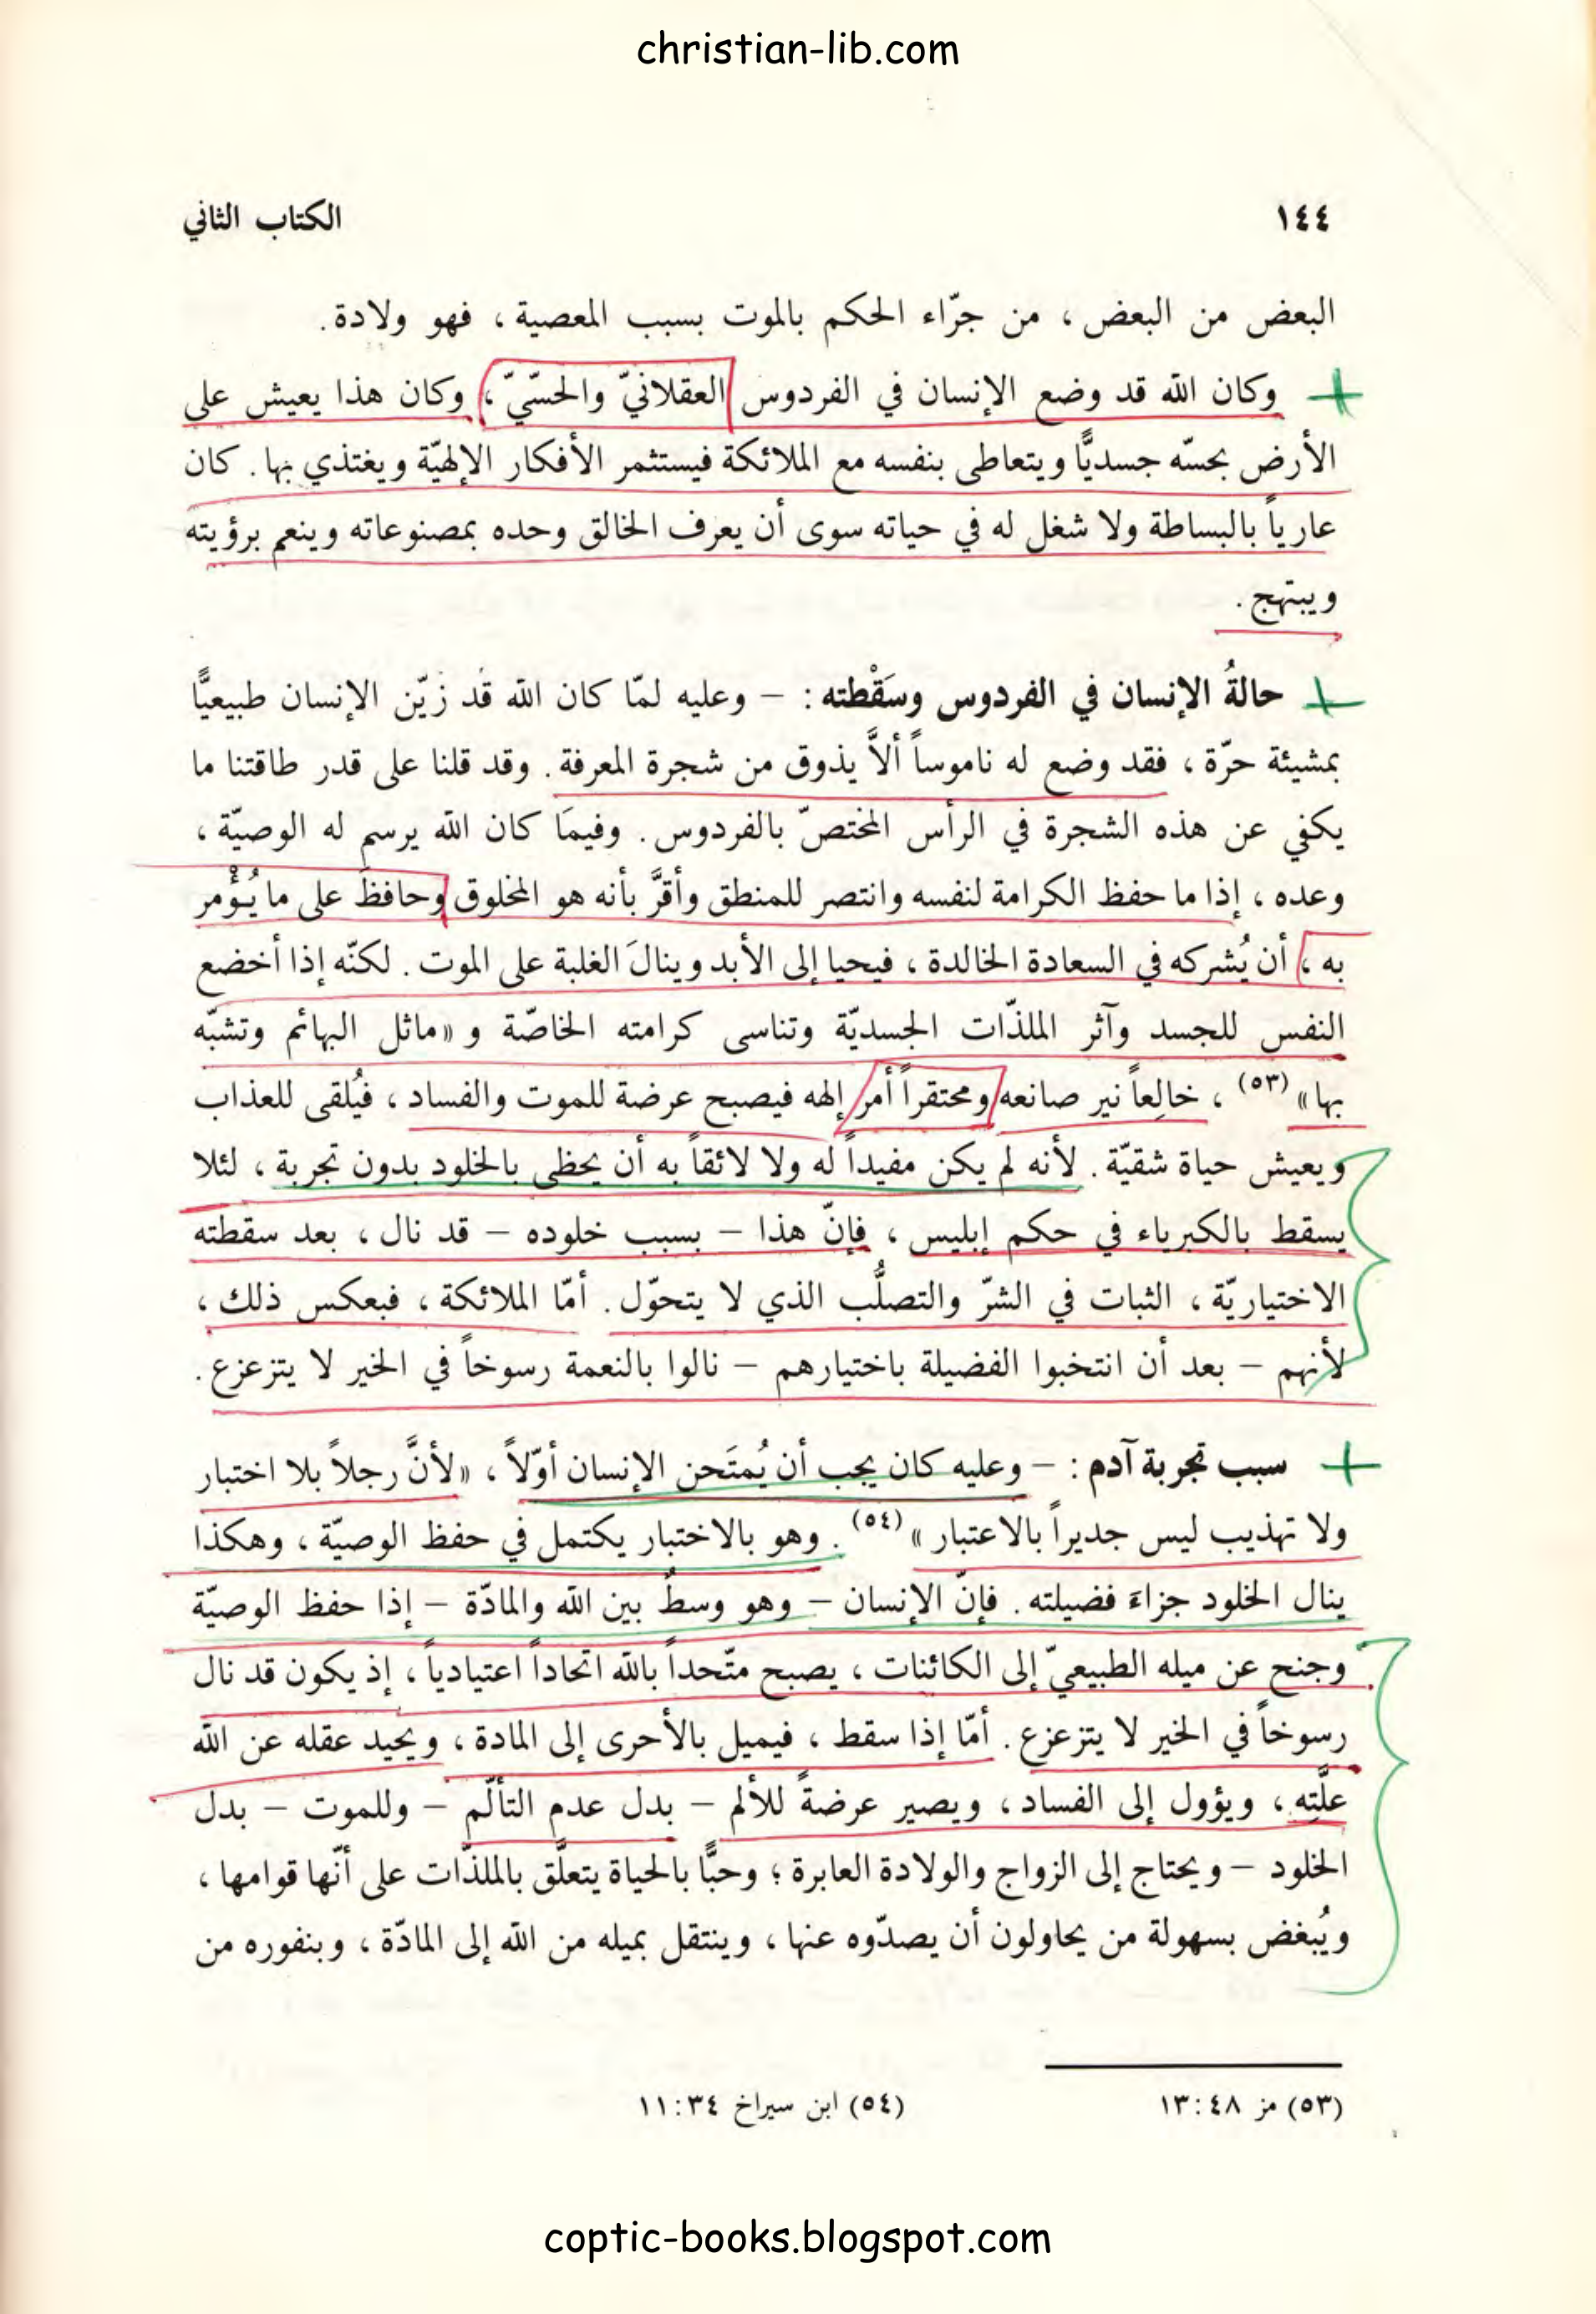 christian-lib.com
١٤٤ الكتاب الثاني
البعض من البعض ، من جرّاء الحكم بالموت بسبب المعصية ، فهو ولادة .
وكان الله قد وضع الإنسان في الفردوس العقلانيّ والحسّيّ ، وكان هذا يعيش على
الأرض بحسّه جسديًّا ويتعاطى بنفسه مع الملائكة فيستثمر الأفكار الإلهيّة ويغتذي بها . كان
عارياً بالبساطة ولا شغل له في حياته سوى أن يعرف الخالق وحده بمصنوعاته وينعم برؤيته
ويبتهج .
حالةُ الإنسان في الفردوس وسَقْطته : – وعليه لمّا كان الله قد زيّن الإنسان طبيعيًّا
بمشيئة حرّة ، فقد وضع له ناموساً ألاَّ يذوق من شجرة المعرفة . وقد قلنا على قدر طاقتنا ما
يكفي عن هذه الشجرة في الرأس المختصّ بالفردوس . وفيمَا كان الله يرسم له الوصيّة ،
وعده ، إذا ما حفظ الكرامة لنفسه وانتصر للمنطق وأقرَّ بأنه هو المخلوق وحافظَ على ما يُؤْمر
به ، أن يُشركه في السعادة الخالدة ، فيحيا إلى الأبد وينالَ الغلبة على الموت . لكنّه إذا أخضع
النفس للجسد وآثر الملذّات الجسديّة وتناسى كرامته الخاصّة و «ماثل البهائم وتشبّه
بها» (٥٣) ، خالِعاً نير صانعه ومحتقراً أمر إلهه فيصبح عرضة للموت والفساد ، فيُلقى للعذاب
ويعيش حياة شقيّة . لأنه لم يكن مفيداً له ولا لائقاً به أن يحظى بالخلود بدون تجربة ، لئلا
يسقط بالكبرياء في حكم إبليس ، فإنّ هذا – بسبب خلوده – قد نال ، بعد سقطته
الاختياريّة ، الثبات في الشرّ والتصلُّب الذي لا يتحوّل . أمّا الملائكة ، فبعكس ذلك ،
لأنهم – بعد أن انتخبوا الفضيلة باختيارهم – نالوا بالنعمة رسوخاً في الخير لا يتزعزع .
سبب تجربة آدم : – وعليه كان يجب أن يُمتَحن الإنسان أوّلاً ، «لأنَّ رجلاً بلا اختبار
ولا تهذيب ليس جديراً بالاعتبار » (٥٤) . وهو بالاختبار يكتمل في حفظ الوصيّة ، وهكذا
ينال الخلود جزاءَ فضيلته . فإنّ الإنسان – وهو وسطٌ بين الله والمادّة – إذا حفظ الوصيّة
وجنح عن ميله الطبيعيّ إلى الكائنات ، يصبح متّحداً بالله اتحاداً اعتيادياً ، إذ يكون قد نال
رسوخاً في الخير لا يتزعزع . أمّا إذا سقط ، فيميل بالأحرى إلى المادة ، ويحيد عقله عن الله
علَّتِه ، ويؤول إلى الفساد ، ويصير عرضةً للألم – بدل عدم التألّم – وللموت – بدل
الخلود – ويحتاج إلى الزواج والولادة العابرة ؛ وحبًّا بالحياة يتعلَّق بالملذّات على أنّها قوامها ،
ويُبغض بسهولة من يحاولون أن يصدّوه عنها ، وينتقل بميله من الله إلى المادّة ، وبنفوره من
(٥٣) مز ٤٨:١٣ (٥٤) ابن سيراخ ٣٤:١١
coptic-books.blogspot.com